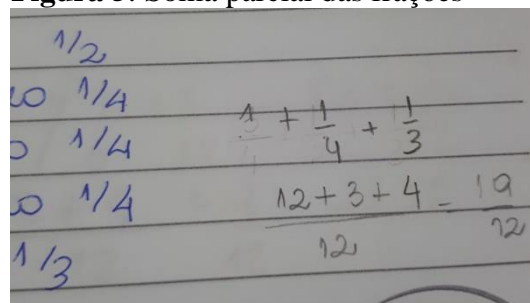 Figura 3: Soma parcial das frações
1/2
o 1/4
o 1/4
o 1/4
1/3
1 + 1/4 + 1/3
12+3+4/12 = 19/12